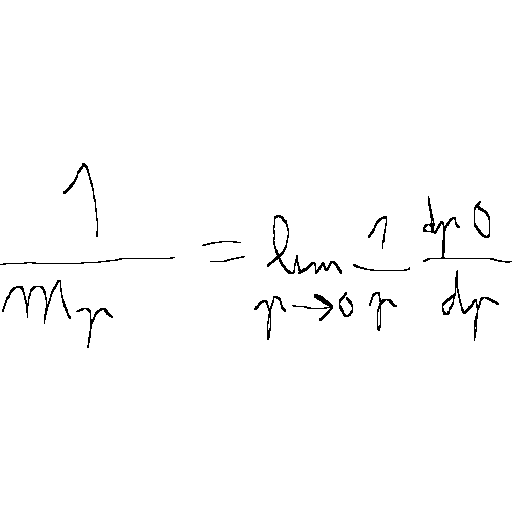 \frac{1}{m_p} = \lim_{p \to 0} \frac{1}{p} \frac{dp0}{dp}